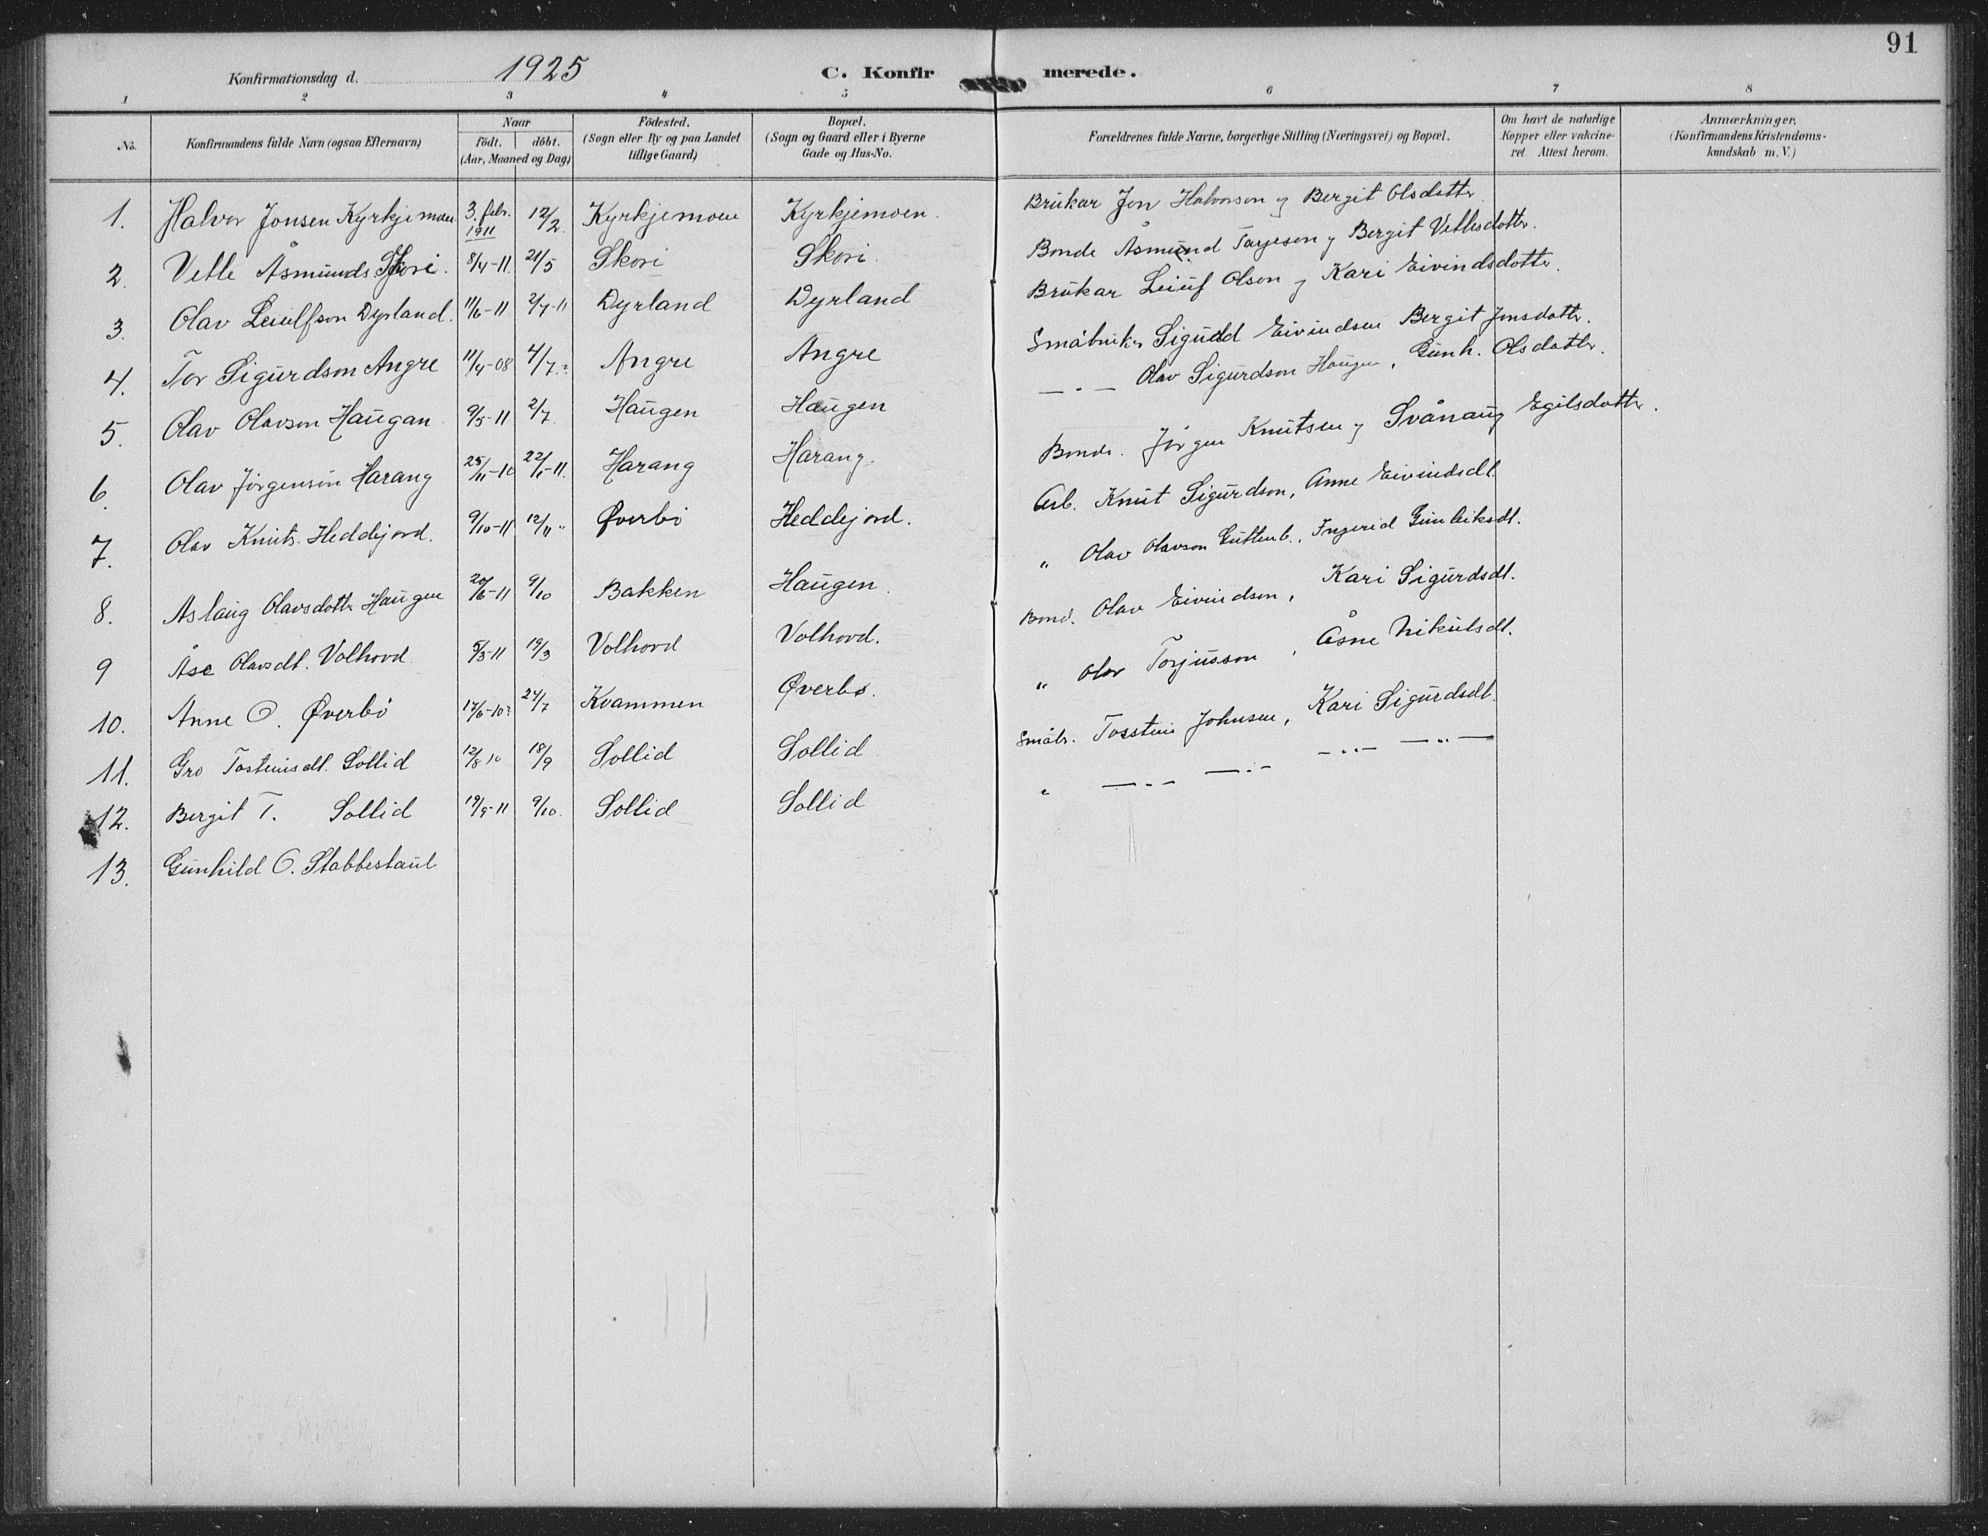 91
Konfirmationsdag d. 1925 C. Konfirmerede.
1 2 3 4 5 6 7 8
No. Konfirmandens fulde Navn (ogsaa Efternavn) Naar födt. döbt. (Aar, Maaned og Dag) Födested. (Sogn eller By og paa Landet tillige Gaard) Bopæl. (Sogn og Gaard eller i Byerne Gade og Hus-No. Forældrenes fulde Navne, borgerlige Stilling (Næringsvei) og Bopæl. Om havt de naturlige Kopper eller vakcineret. Attest herom. Anmærkninger. (Konfirmandens Kristendomskundskab m. V.)
1. Halvor Jonsen Kyrkjemoen 3. febr. 1911 12/2 Kyrkjemoen Kyrkjemoen. Brukar Jon Halvorson og Bergit Olsdotter
2. Vetle Åsmunds Skori. 8/4-11 21/5 Skori Skori. Bonde Åsmund Tarjeson og Bergit Vetlesdotter.
3. Olav Leiulfson Dyrland. 11/6-11 2/7-11 Dyrland Dyrland Brukar Leiuf Olson og Kari Eivindsdotter.
4. Tor Sigurdson Angre 11/4-08 4/7? Angre Angre Småbruker Sigudd Eivindsen Bergit Jonsdotter.
5. Olav Olavson Haugan 9/5-11 2/7 Haugen Haugen — " — Olav Sigurdson Haugen, Gunh. Olsdotter.
6. Olav Jørgenson Harang 25/11-10 22/1-11. Harang Harang. Bonde. Jørgen Knutsen og Svånaug Egilsdotter.
7. Olav Knuts. Heddejord. 9/10-11 12/11 " Øverbø Heddejord. Arb. Knut Sigurdson, Anne Eivindsdt.
8. Aslaug Olavsdotter Haugen 20/6-11 9/10 Bakken Haugen. " Olav Olavson Guttenb., Ingerid Gunleiksdt.
9 Åse Olavsdt. Volhovd. 5/3-11 19/3 Volhovd Volhovd. Bond. Olav Eivindson, Kari Sigurdsdt.
10. Anne O. Øverbø 17/6-10? 24/7 Kvammen Øverbø. " Olav Torjusson, Åsne Nikulsdt.
11. Gro Tosteinsdt. Sollid 12/8 10 18/9 Sollid Sollid Småbr. Tosstein Johnsen, Kari Sigurdsdt.
12. Bergit T. Sollid 19/9-11 9/10. Sollid Sollid " — " — — " — — " — — " —
13. Gunhild O. Stabbestaul